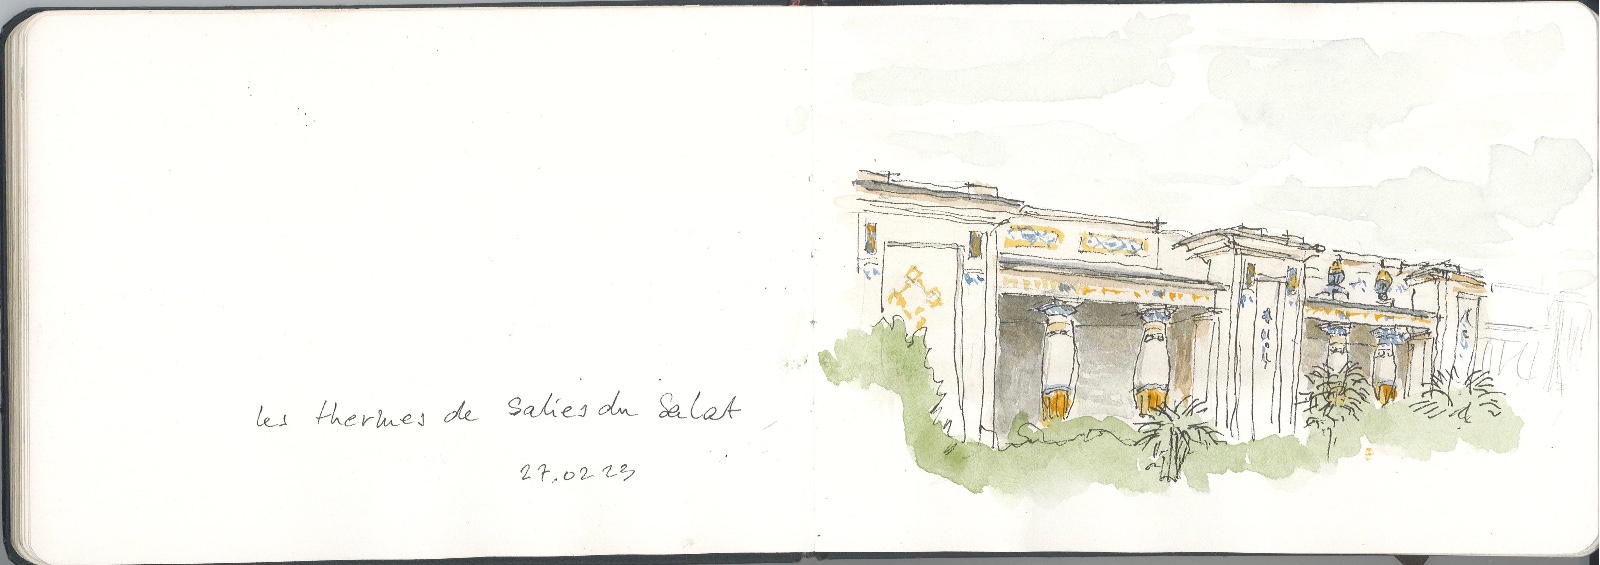 les thermes de Salies du Salat
27.02 23